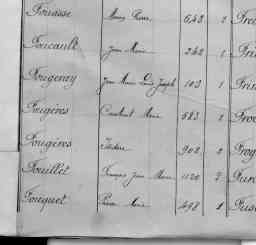 Fouasse Marie Pierre 648 1 Fre
Foucault Jean Marie 262 1 Fri
Fougeray Jean Marie Louis Joseph 103 1 Frin
Fougères Constant Marie 583 1 Fro
Fougères Isidore 902 1 Frog
Fouillet François Jean Marie 1120 2 Fur
Fouquet Pierre Marie 498 1 Fus